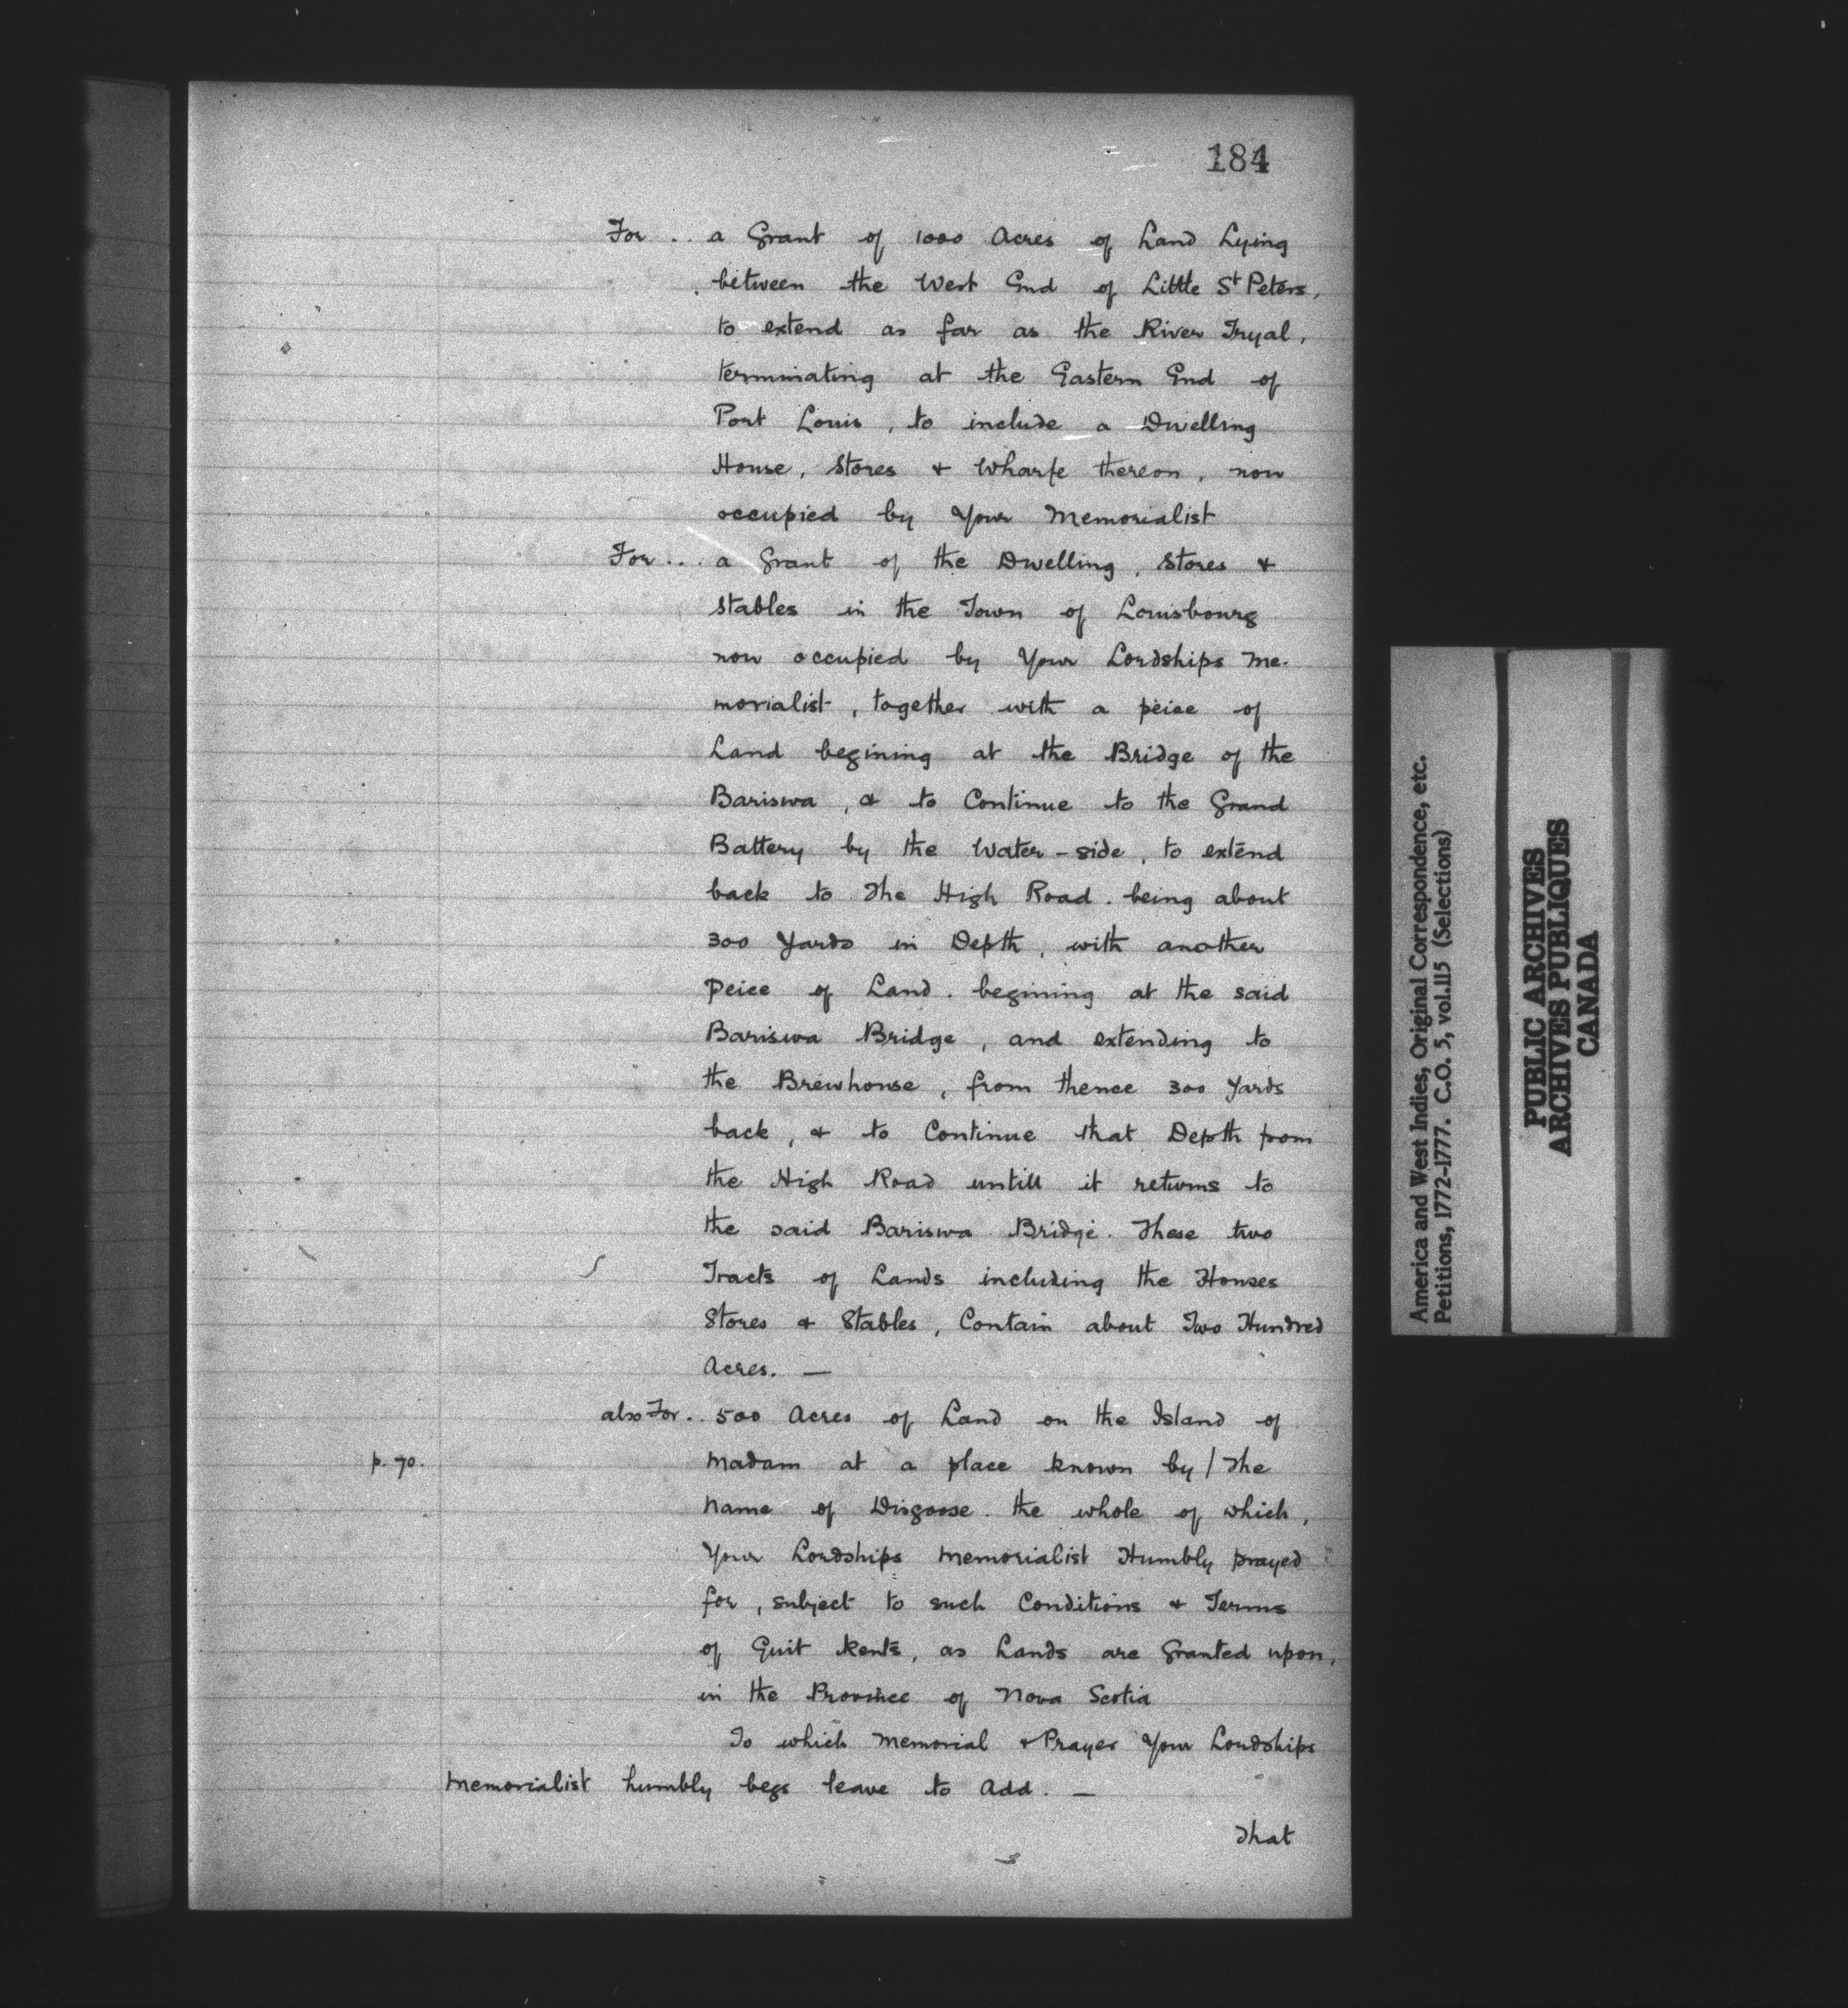 184
For .. a Grant of 1000 Acres of Land Lying
between the West End of Little St Peters,
to extend as far as the River Tryal,
terminating at the Eastern End of
Port Louis, to include a Dwelling
House, Stores & Wharfe thereon, now
occupied by Your Memorialist
For ... a Grant of the Dwelling, Stores &
Stables in the Town of Louisbourg
now occupied by Your Lordships Me-
morialist, together with a peice of
Land begining at the Bridge of the
Bariswa, & to Continue to the Grand
Battery by the Water-side, to extend
back to The High Road. being about
300 Yards in Depth, with another
peice of Land. begining at the said
Bariswa Bridge, and extending to
the Brewhouse, from thence 300 Yards
back, & to Continue that Depth from
the High Road untill it returns to
the said Bariswa Bridge. These two
Tracts of Lands including the Houses
Stores & Stables, Contain about Two Hundred
Acres. —
also For .. 500 Acres of Land on the Island of
p. 70. Madam at a place known by / The
Name of Disgoose. the whole of which,
Your Lordships Memorialist Humbly prayed
for, subject to such Conditions & Terms
of Quit Rents, as Lands are Granted upon,
in the Province of Nova Scotia
To which Memorial & Prayer Your Lordships
Memorialist humbly begs leave to Add. —
That
America and West Indies, Original Correspondence, etc.
Petitions, 1772-1777. C.O. 5, vol.115 (Selections)
PUBLIC ARCHIVES
ARCHIVES PUBLIQUES
CANADA